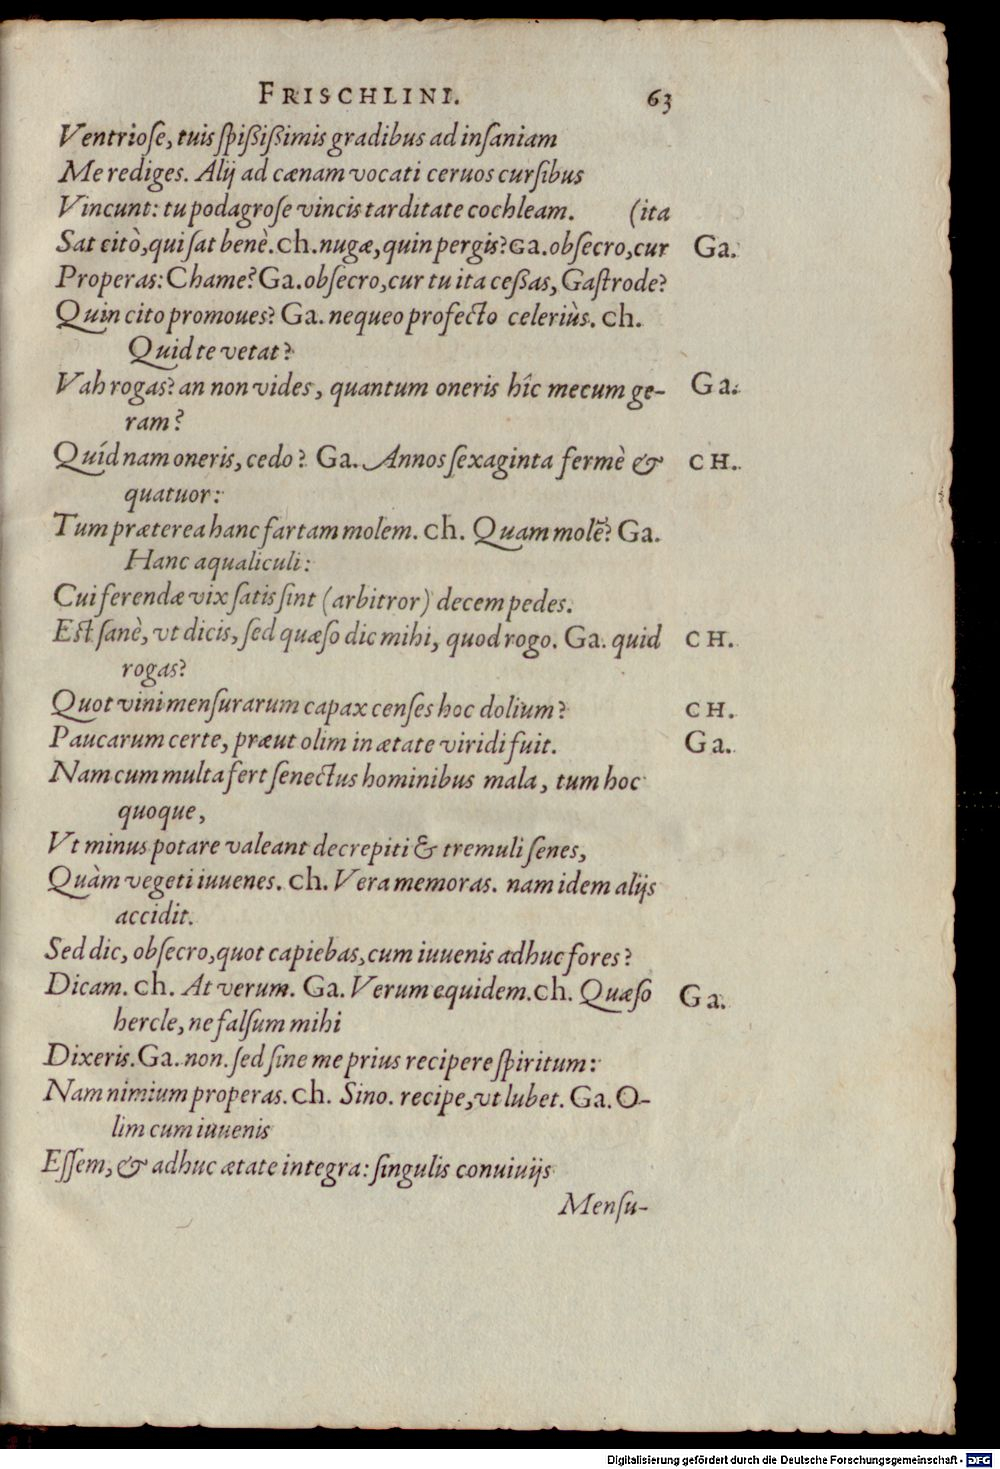 FRISCHLINI. 63
Ventriose, tuis spißißimis gradibus ad insaniam
Me rediges. Alij ad cænam vocati ceruos cursibus
Vincunt: tu podagrose vincis tarditate cochleam. (ita
Sat citò, qui sat benè. Ch. nugæ, quin pergis? Ga. obsecro, cur Ga.
Properas: Chame? Ga. obsecro, cur tu ita ceßas, Gastrode?
Quin cito promoues? Ga. nequeo profecto celeriùs. Ch.
Quid te vetat?
Vah rogas? an non vides, quantum oneris hîc mecum ge- Ga.
ram?
Quíd nam oneris, cedo? Ga. Annos sexaginta fermè & CH.
quatuor:
Tum præterea hanc fartam molem. Ch. Quam molẽ? Ga.
Hanc aqualiculi:
Cui ferendæ vix satis sint (arbitror) decem pedes.
Est sanè, vt dicis, sed quæso dic mihi, quod rogo. Ga. quid CH.
rogas?
Quot vini mensurarum capax censes hoc dolium? CH.
Paucarum certe, præut olim in ætate viridi fuit. Ga.
Nam cum multa fert senectus hominibus mala, tum hoc
quoque,
Vt minus potare valeant decrepiti & tremuli senes,
Quàm vegeti iuuenes. Ch. Vera memoras. nam idem alijs
accidit.
Sed dic, obsecro, quot capiebas, cum iuuenis adhuc fores?
Dicam. Ch. At verum. Ga. Verum equidem. Ch. Quæso Ga.
hercle, ne falsum mihi
Dixeris. Ga. non. sed sine me prius recipere spiritum:
Nam nimium properas. Ch. Sino. recipe, vt lubet. Ga. O-
lim cum iuuenis
Essem, & adhuc ætate integra: singulis conuiuijs
Mensu-
Digitalisierung gefördert durch die Deutsche Forschungsgemeinschaft - DFG